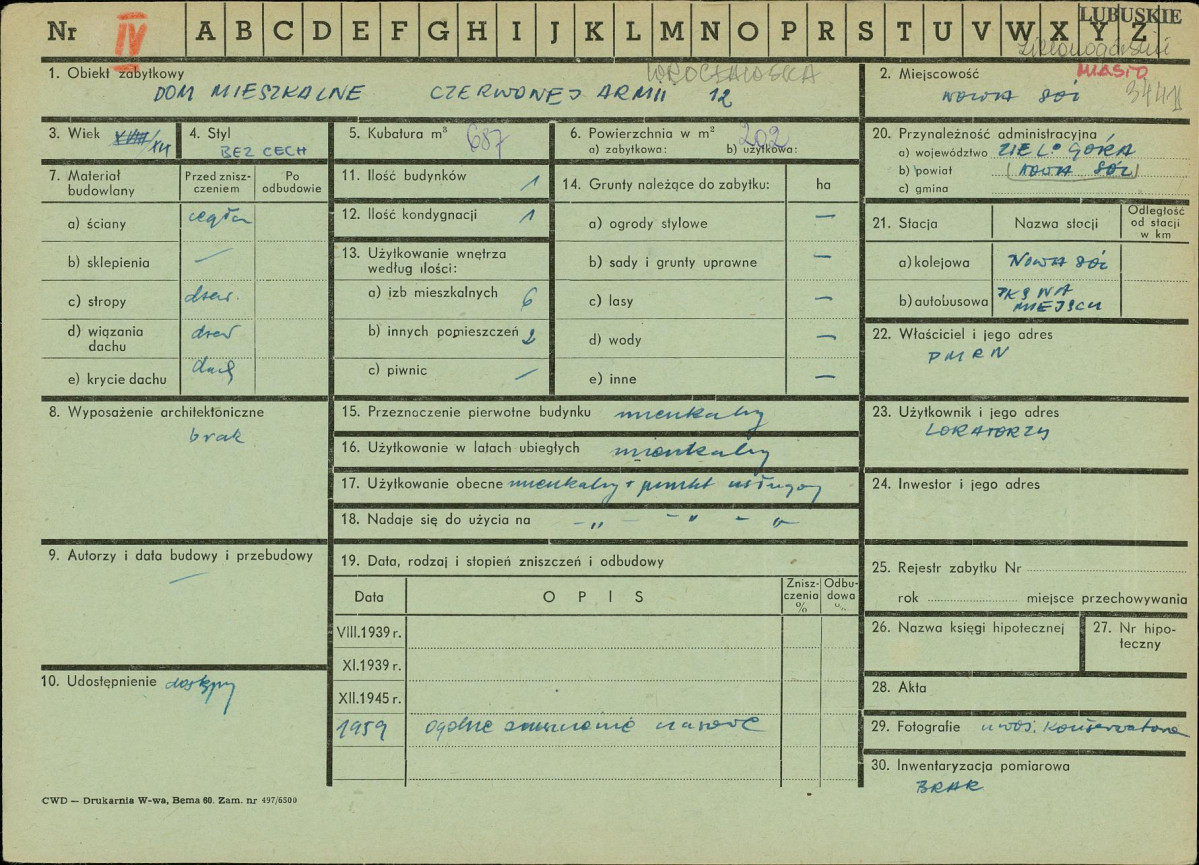 Nr IV A B C D E F G H I J K L M N O P R S T U V W X Y Z LUBUSKIE
zielonogórskie
MIASTO
3441
1. Obiekt zabytkowy WROCŁAWSKA
DOM MIESZKALNE CZERWONEJ ARMII 12
2. Miejscowość
NOWA SÓL
3. Wiek XVIII/XIX
4. Styl
BEZ CECH
5. Kubatura m³ 687
6. Powierzchnia w m² 202
a) zabytkowa: b) użytkowa:
7. Materiał budowlany
Przed zniszczeniem
Po odbudowie
a) ściany cegła
b) sklepienia —
c) stropy drew.
d) wiązania dachu drew
e) krycie dachu dach
8. Wyposażenie architektoniczne
brak
9. Autorzy i data budowy i przebudowy
—
10. Udostępnienie dostępny
11. Ilość budynków 1
12. Ilość kondygnacji 1
13. Użytkowanie wnętrza według ilości:
a) izb mieszkalnych 6
b) innych pomieszczeń 2
c) piwnic —
14. Grunty należące do zabytku: ha
a) ogrody stylowe —
b) sady i grunty uprawne —
c) lasy —
d) wody —
e) inne —
15. Przeznaczenie pierwotne budynku mieszkalny
16. Użytkowanie w latach ubiegłych mieszkalny
17. Użytkowanie obecne mieszkalny + punkt usługowy
18. Nadaje się do użycia na - " - - " - " -
19. Data, rodzaj i stopień zniszczeń i odbudowy
Data OPIS Zniszczenia % Odbudowa %
VIII.1939 r.
XI.1939 r.
XII.1945 r.
1959 ogólne
20. Przynależność administracyjna
a) województwo ZIEL. GÓRA
b) powiat (NOWA SÓL)
c) gmina
21. Stacja Nazwa stacji Odległość od stacji w km
a) kolejowa NOWA SÓL
b) autobusowa PKS NA MIEJSCU
22. Właściciel i jego adres
PMRN
23. Użytkownik i jego adres
LOKATORZY
24. Inwestor i jego adres
25. Rejestr zabytku Nr
rok miejsce przechowywania
26. Nazwa księgi hipotecznej
27. Nr hipoteczny
28. Akta
29. Fotografie u woj. Konserwatora
30. Inwentaryzacja pomiarowa
BRAK
CWD — Drukarnia W-wa, Bema 60. Zam. nr 497/6500